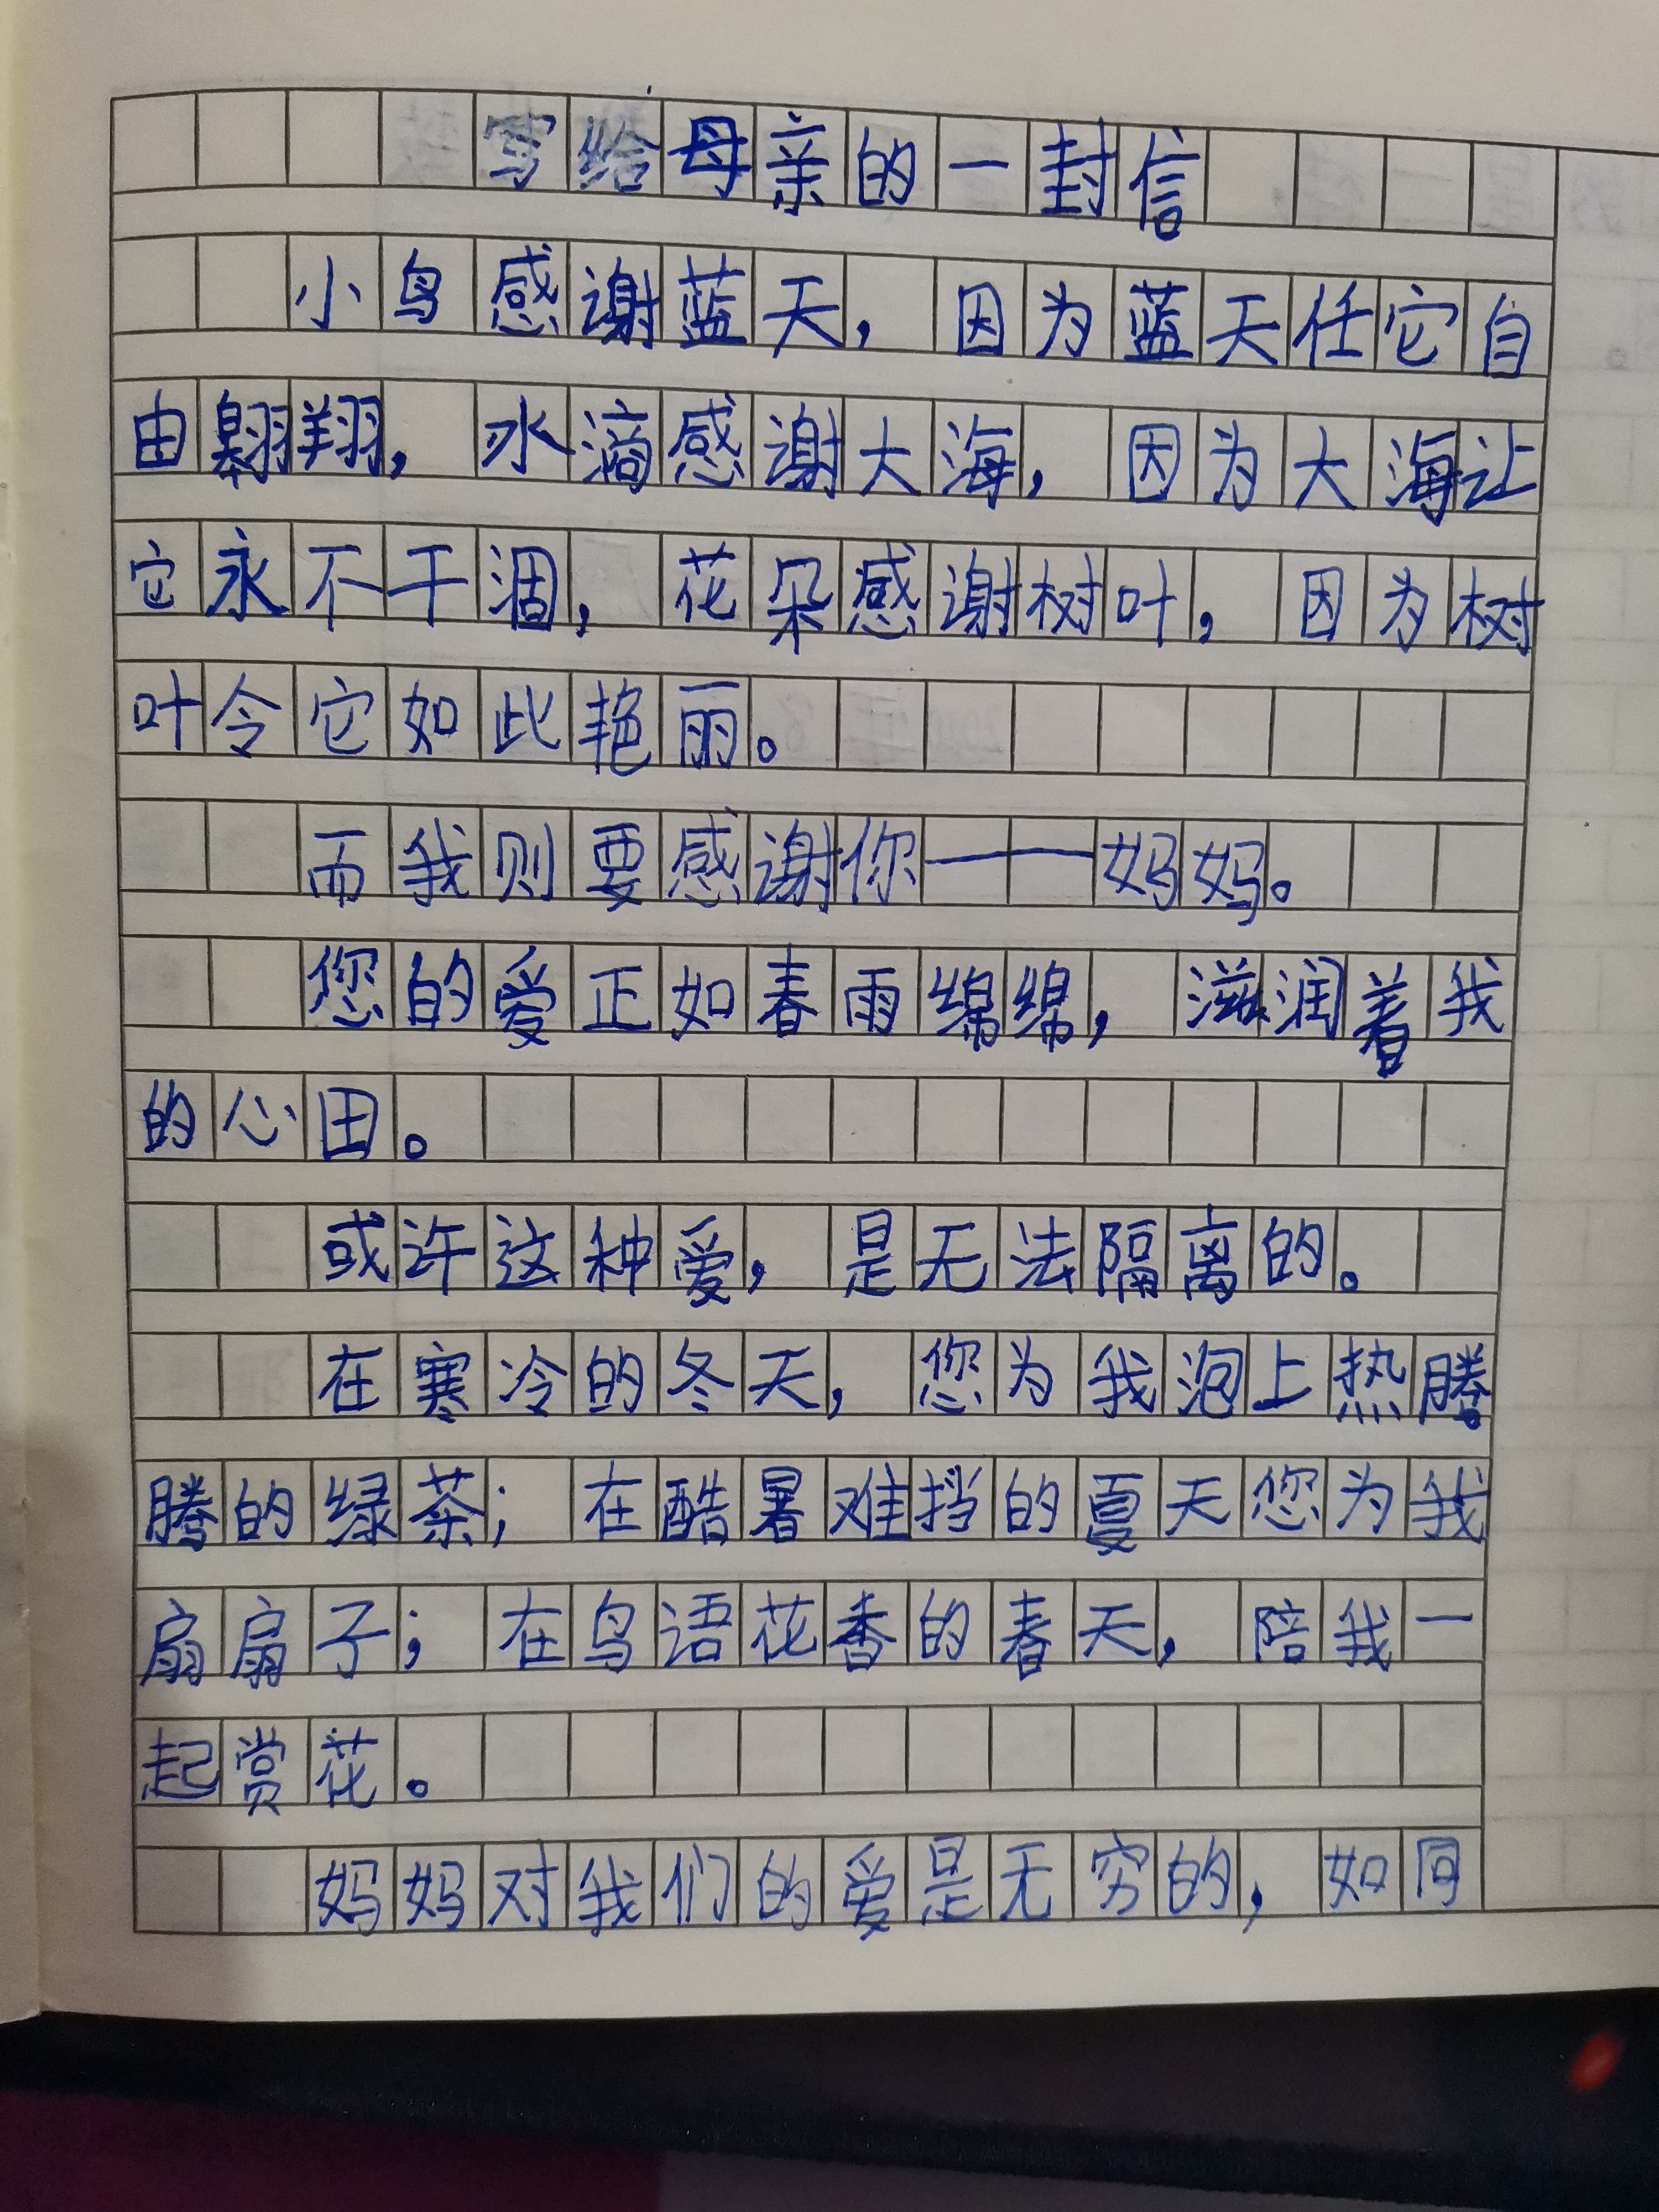 写给母亲的一封信
小鸟感谢蓝天，因为蓝天任它自
由翱翔，水滴感谢大海，因为大海让
它永不干涸，花朵感谢树叶，因为树
叶令它如此艳丽。
而我则要感谢你——妈妈。
您的爱正如春雨绵绵，滋润着我
的心田。
或许这种爱，是无法隔离的。
在寒冷的冬天，您为我泡上热腾
腾的绿茶；在酷暑难挡的夏天您为我
扇扇子；在鸟语花香的春天，陪我一
起赏花。
妈妈对我们的爱是无穷的，如同